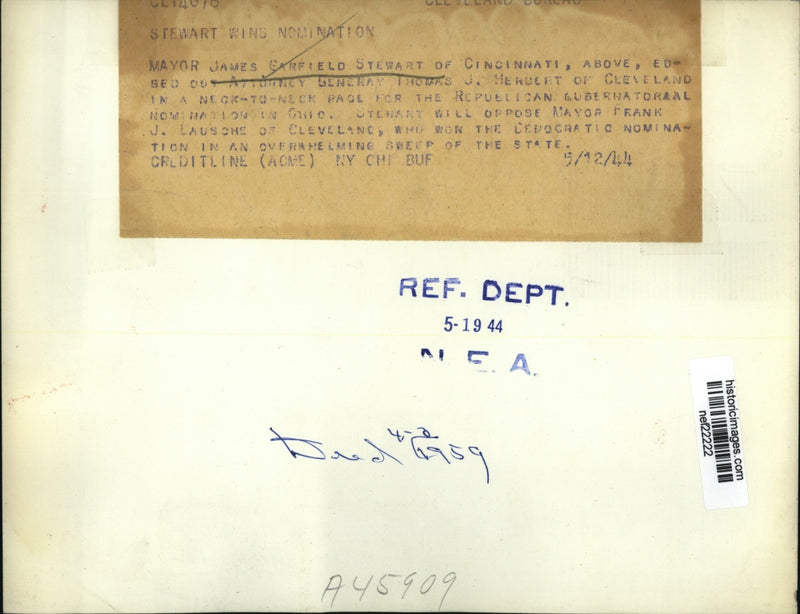 CL14076 CLEVELAND BUREAU
STEWART WINS NOMINATION
MAYOR JAMES GARFIELD STEWART OF CINCINNATI, ABOVE, ED-
GED OUT ATTORNEY GENERAY THOMAS J. HERBERT OF CLEVELAND
IN A NECK-TO-NECK RACE FOR THE REPUBLICAN GUBERNATORAAL
NOMINATION IN OHIO. STEWART WILL OPPOSE MAYOR FRANK
J. LAUSCHE OF CLEVELAND, WHO WON THE DEMOCRATIC NOMINA-
TION IN AN OVERWHELMING SWEEP OF THE STATE.
CREDITLINE (ACME) NY CHI BUF 5/12/44
REF. DEPT.
5-19 44
N. E. A.
historicimages.com
nef22222
Died 4-3 1959
A45909